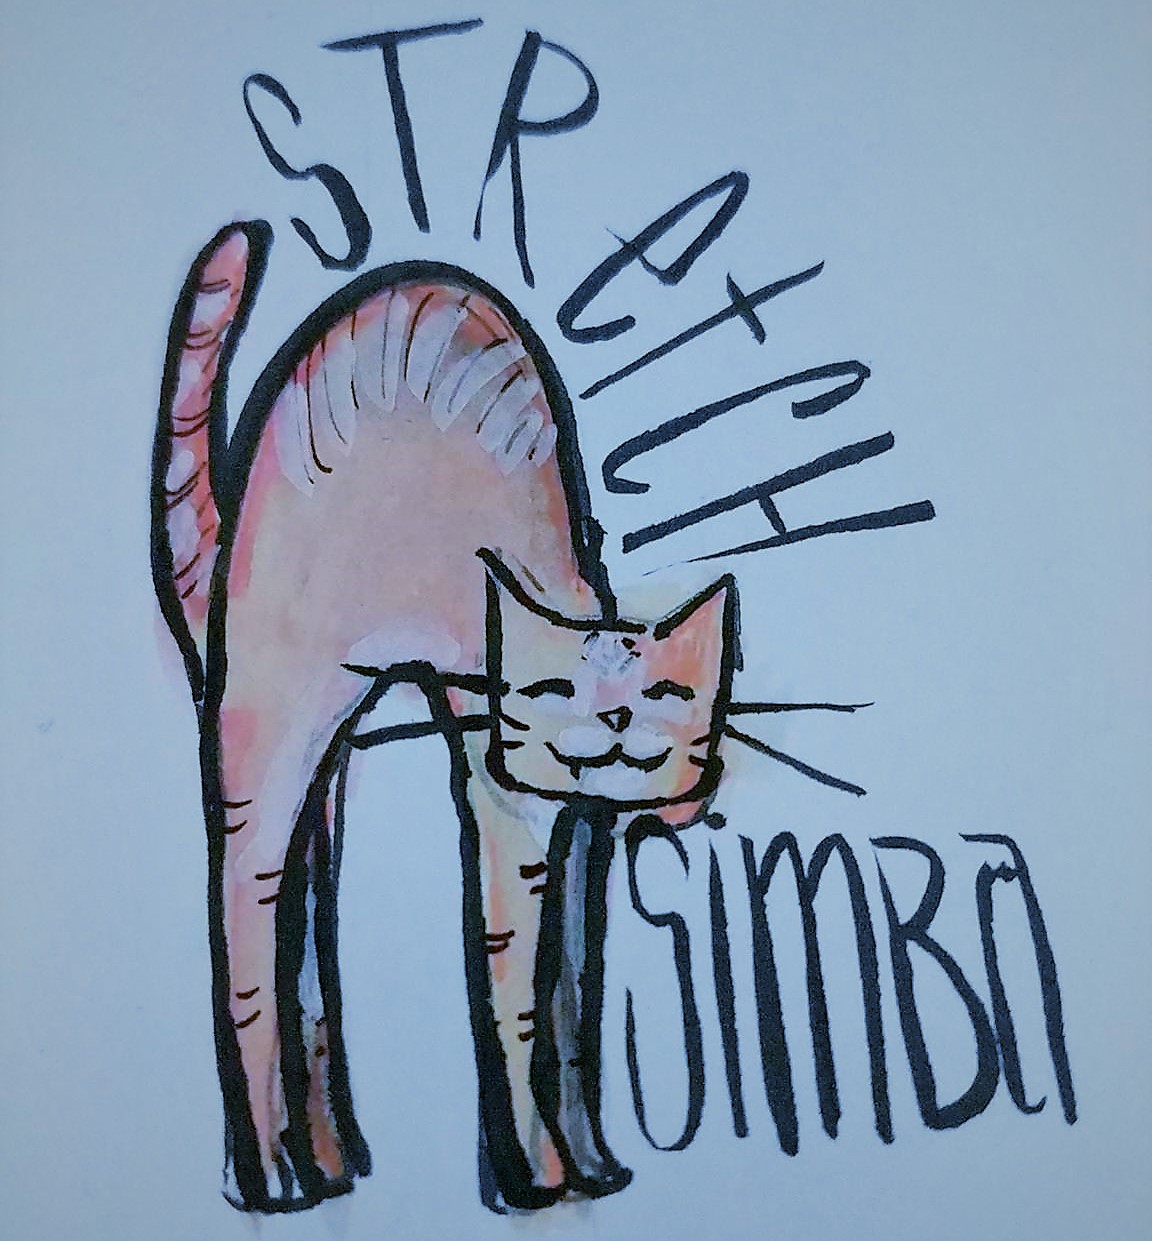 STRETCH
SiMBa